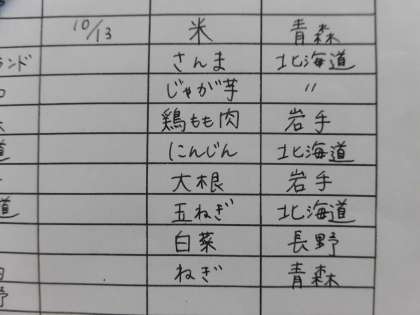 10/13 米 青森
ランド さんま 北海道
じゃが芋 〃
鶏もも肉 岩手
道 にんじん 北海道
大根 岩手
道 玉ねぎ 北海道
白菜 長野
ねぎ 青森
野